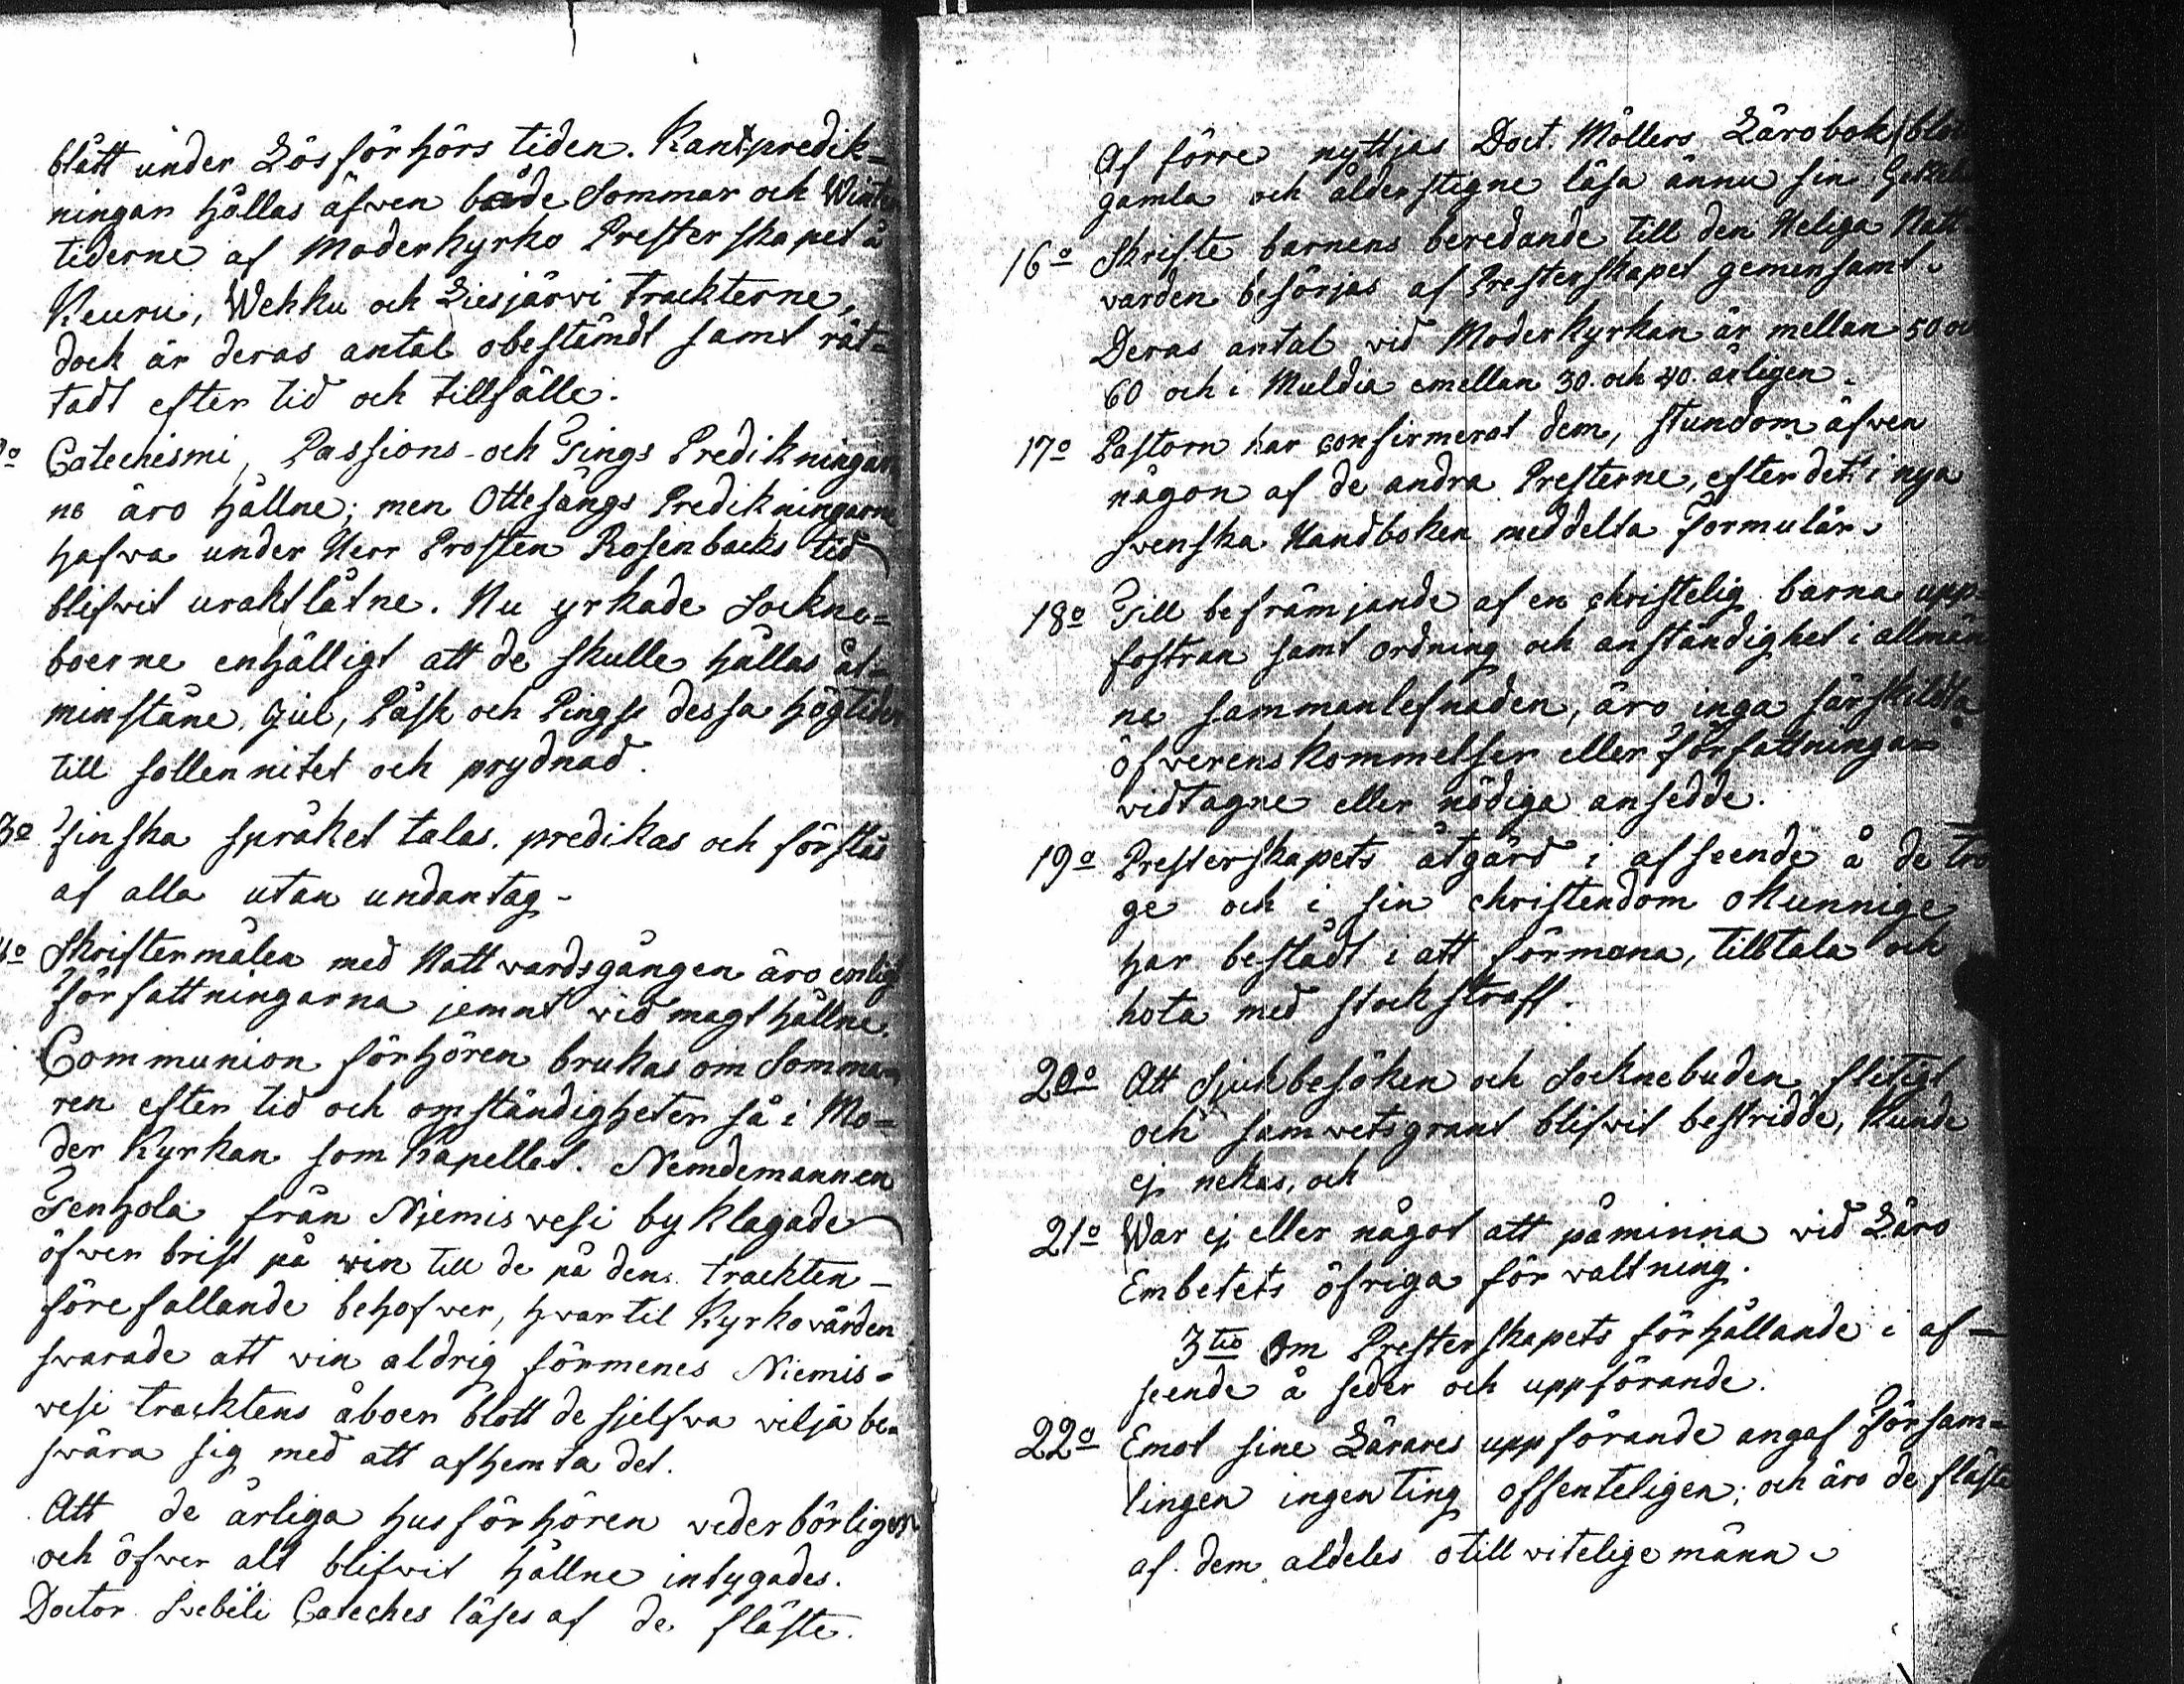 blått under Läsförhörs tiden. Rant predik=
ningar hållas äfwen både Sommar och Winter
tiderne af Moderkyrko Presterskapet i
Keuru, Wehhu och Liesjärwi trackterne,
dock är deras antal obestämdt samt rät=
tadt efter tid och tillfälle.
Catechismi, Passions- och Tings Predikningar
ne äro hållne; men Ottesångs Predikningarne
hafwa under Herr Prosten Rosenbacks tid
blifwit uraktlåtne. Nu yrkade Sockne=
boerne enhälligt att de skulle hållas åt=
minstone Jul, Påsk och Pingst dessa högtider
till sollennitet och prydnad.
3o Finska språket talas, predikas och förstås
af alla utan undantag.
Skriftermålen med Nattwardsgången äro enligt
Författningarna jemnt wid magt hållne.
Communion förhören brukas om Somma=
ren efter tid och omständigheter så i Mo=
der Kyrkan som Kapellet. Nemdemannen
Tenhola från Niemiswesi by klagade
öfwer brist på win till de på den trackten
förefallande behofwer, hwartil Kyrkowärden
swarade att win aldrig förmenes Niemis=
wesi tracktens åboer blott de sjelfwa welja be=
swära sig med att afhemta det.
Att de årliga husförhören wederbörligen
och öfwer alt blifwit hållne intygades.
Doctor Swebilii Cateches läses af de fläste.
Af förre nyttjas Doct. Möllers Lärobok (blott
gamla och ålderstigne läsa ännu sin
16o Skriftebarnens beredande till den Heliga Natt=
warden besörjas af Presterskapet gemensamt.
Deras antal wid Moderkyrkan är mellan 50 och
60 och i Muldia emellan 30. och 40. årligen.
17o Pastorn har confirmerat dem, stundom äfwen
någon af de andra Presterne, efter det i nya
swenska Handboken meddelta Formulär.
18o Till befrämjande af en christelig barna upp=
fostran samt ordning och anständighet i allmän
na sammanlefnaden, äro inga särskildta
öfwerenskommelser eller författningar
widtagne eller nödiga ansedde.
19o Presterskapets åtgärd i afseende å de trö
ge och i sin christendom okunnige
har bestådt i att förmana, tilltala och
hota med stockstraff.
20o Att Sjukbesöken och Socknebuden flitigt
och samwetsgrant blifwit bestridde, kunde
ej nekas, och
21o War ej eller något att påminna wid Läro
Embetets öfriga förwaltning.
3tio Om Presterskapets förhållande i af=
seende å seder och uppförande.
22o Emot sine Lärares uppförande angaf Försam=
lingen ingenting offenteligen; och äro de fläste
af dem aldeles otillwitelige män.